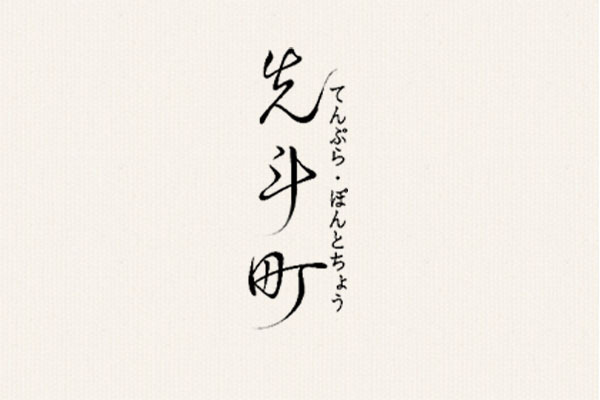 先斗町
てんぷら・ぽんとちょう